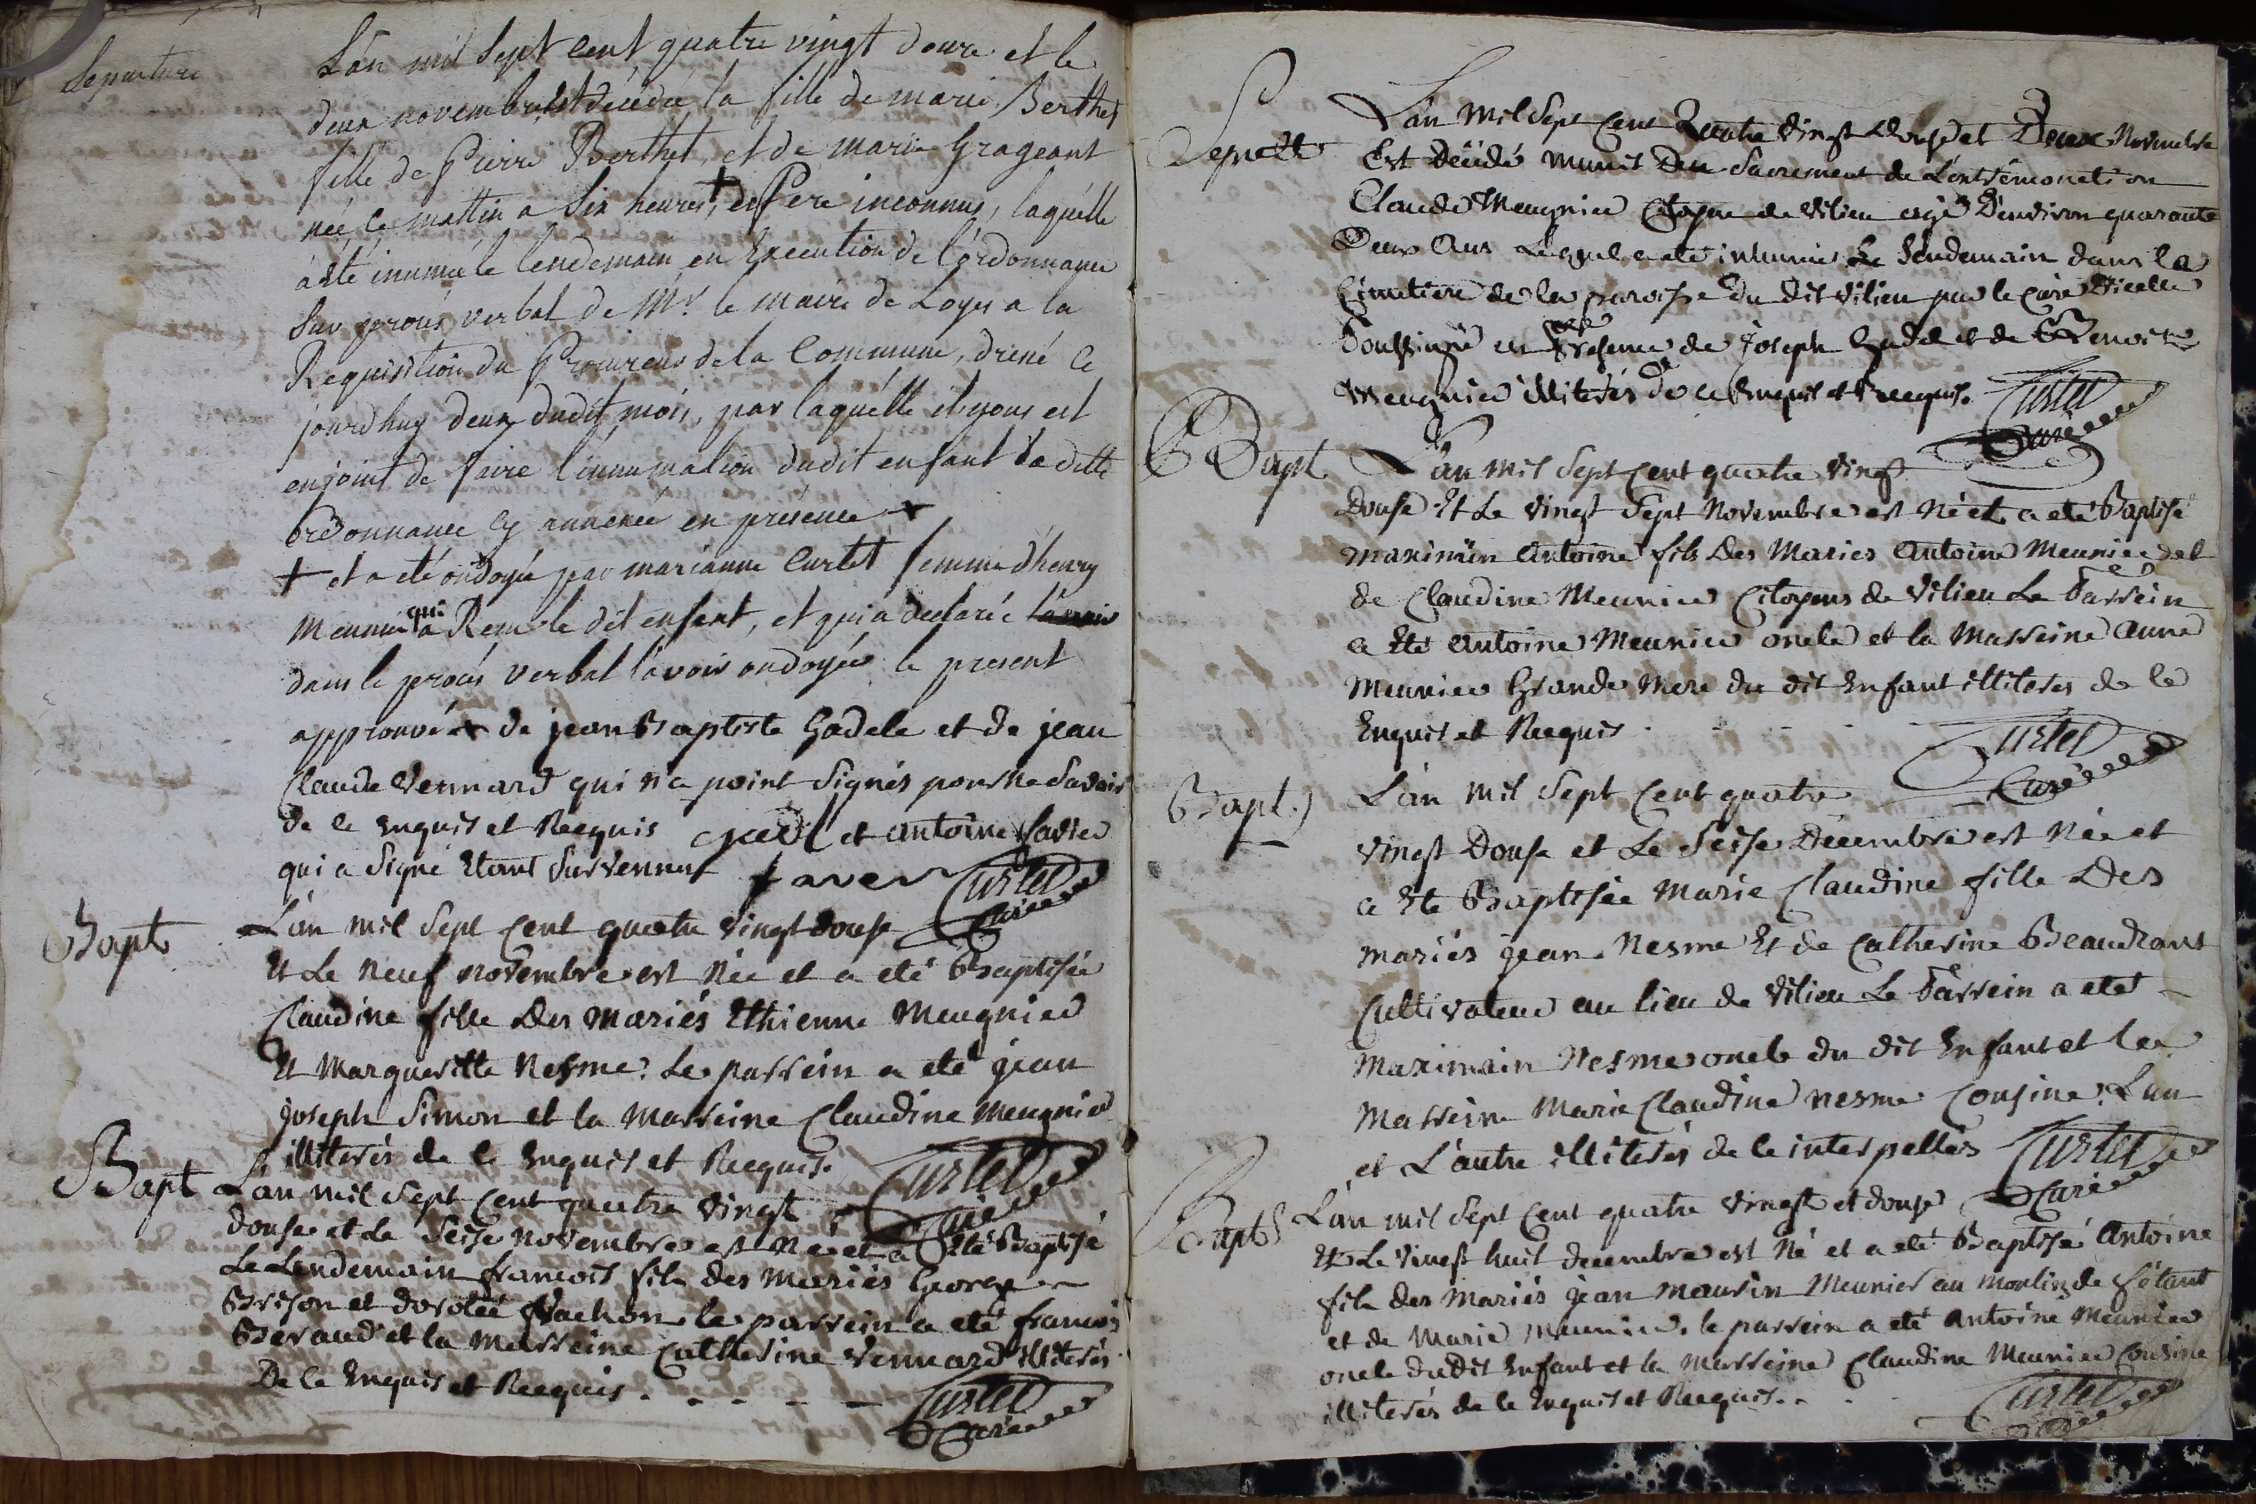 Sepulture
L'án mil Sept Cent quatre vingt douze et le
deux novembre est décédée la fille de marie Berthet
fille de Pierre Berthet, et de marie Grageant
née ce mattin a Six heures, + de Pere inconnus, laquélle
à été inumée le lendemain en Execution de l'órdonnance
Sur procés verbal de Mr. le maire de Loyes a la
Requisition du Procureur de la Commune, dréné Ce
jourdhuy deux dudit mois, par laquélle il nous est
enjoint de faire l'innumation dudit enfant la ditte
Ordonnance Cy annexée en présence +
+ et a eté ondoyée par marianne Curtet femme d'henry
Meunier qui a Remi le dit enfant, et qui a declarée
dans le procés verbal l'avoir ondoyée le present
approuvé + de jean Baptiste Gadele et de jean
Claude Vennard qui n'a point Signés pour ne Savoir
de ce Enquis et Recquis Gadel et antoine favier
qui a Signé Etant Survennut favier Curtet
Curé
Bapt
L'án mil Sept Cent quatre vingt douse
Et Le neuf novembre est Née et a eté Baptisée
Claudine fille Des mariés Ethienne Meugnier
Et Margueritte Nesme. Le parrein a eté jean
joseph Simon et la Marreine Claudine Meugnier
illiterés de ce Enquis et Recquis. Curtet
Curé
Bapt
L'an mil Sept Cent quatre vingt
douse et Le Seise novembre est Né et a Eté Baptisé
Le Lendemain francois fils des Mariés George
Brison et dorotée Vachon le parrein a eté francois
Beraud et la Marreine Catherine Vennard illiterés
De ce Enquis et Recquis. Curtet
Curé
Sepulte
L'an Mil Sept Cent Quatre Vingt Douse et Deux Novembre
Est Décédé munis Du Sacrement de L'extrémonction
Claude Meugnier Citoyen de Vilieu agé D'environ quarante
Deux Ans Lequel a eté inhumé Le Lendemain dans la
Cimetiere de la paroisse du dit Vilieu par le Curé D'icelle
Soussigné en Présence de Joseph Gadel et de Benoit
Meugnier illiterés De ce Enquis et Recquis. Curtet
Curé
Bapt
L'án mil Sept Cent quatre Vingt
Douse Et Le Vingt Sept Novembre est Né et a eté Baptisé
maximin antoine fils Des Mariés Antoine Meunier et
de Claudine Meunier Citoyens de Vilieu Le Parrein
a Eté Antoine Meunier oncle et la Marreine Anne
Meunier Grande Mere du dit Enfant illiterés de ce
Enquis et Recquis Curtet
Curé
Bapt.
L'án mil Sept Cent quatre
Vingt Douse et Le Seise Décembre est Née et
a Eté Baptisée Marie Claudine fille Des
mariés jean Nesme Et de Catherine Beaudrant
Cultivateur au lieu de Vilieu Le Parrein a eté
Maximain Nesme oncle du dit Enfant et la
Marreine Marie Claudine Nesme Cousine L'un
et L'autre illiterés de ce interpellés Curtet
Curé
Bapt
L'an mil Sept Cent quatre Vingt et douse
Et Le Vingt huit decembre est Né et a eté Baptisé Antoine
fils des Mariés jean maurin Meunier au Moulin de fétant
et de Marie Meunier. le parrein a eté Antoine Meunier
oncle dudit Enfant et la Marreine Claudine Meunier Cousine
illiterés de ce Enquis et Recquis. Curtet
Curé